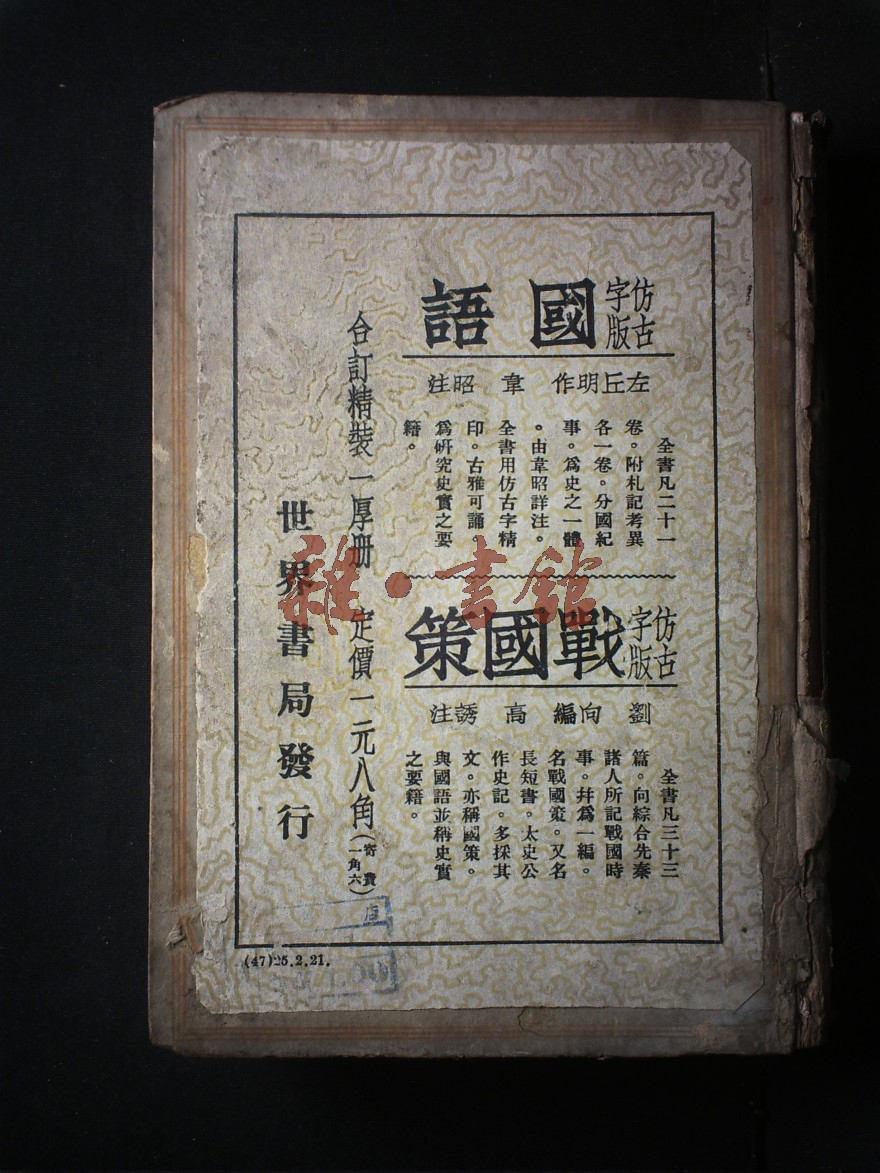 仿古字版
國語
左丘明作 韋昭注
全書凡二十一
卷。附札記考異
各一卷。分國紀
事。爲史之一體
。由韋昭詳注。
全書用仿古字精
印。古雅可誦。
爲研究史實之要
籍。
仿古字版
戰國策
劉向編 高誘注
全書凡三十三
篇。向綜合先秦
諸人所記戰國時
事。幷爲一編。
名戰國策。又名
長短書。太史公
作史記。多採其
文。亦稱國策。
與國語並稱史實
之要籍。
合訂精裝一厚册 定價一元八角(寄費一角六)
世界書局發行
(47)25.2.21.
雜·書館
店